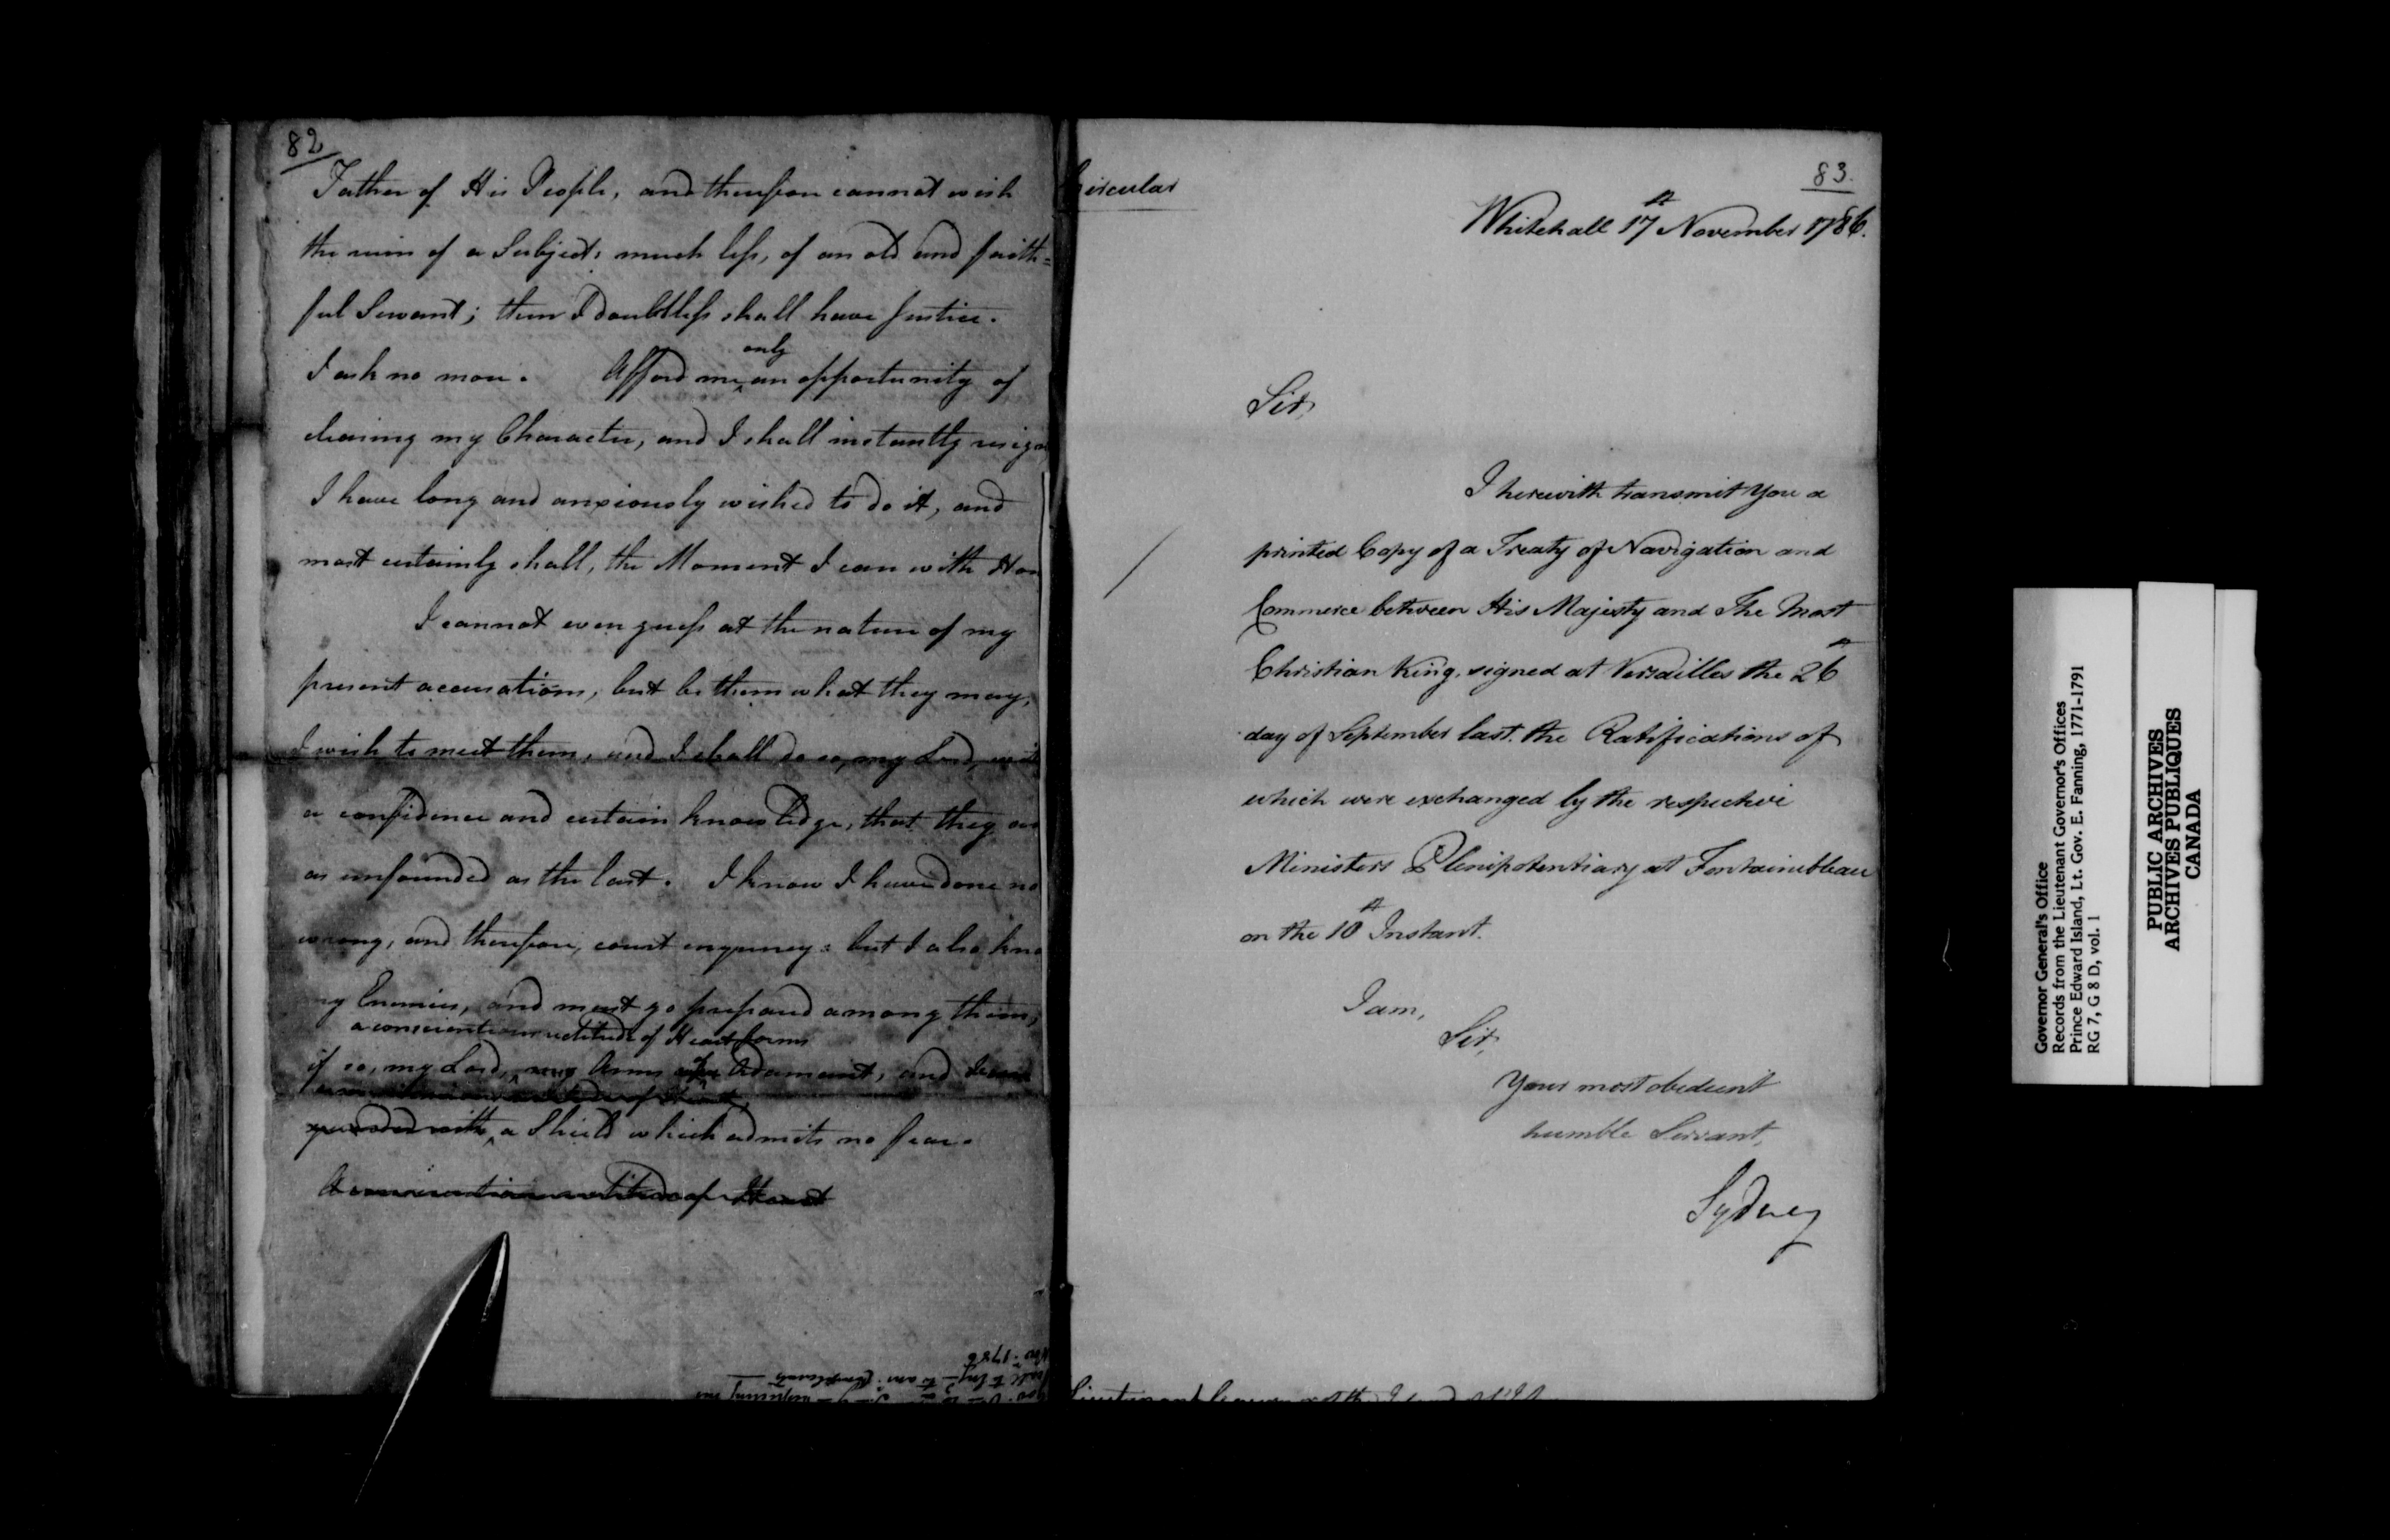 82
Father of His People, and therefore cannot wish
the ruin of a Subject; much less, of an old and faith=
ful Servant; then I doubtless shall have Justice.
only
I ask no more. Afford me ^ an opportunity of
clearing my Character, and I shall instantly resign
I have long and anxiously wished to do it, and
most certainly shall, the Moment I can with Hon
I cannot even guess at the nature of my
present accusations, but be them what they may,
I wish to meet them, and I shall do so, my Lord, with
a confidence and certain knowledge, that they are
as unfounded as the last. I know I have done no
wrong, and therefore, court enquirey: but I also kno
my Enemies, and must go prepared among them;
a conscientious rectitude of Heart forms
if so, my Lord, ^ my Arms of Adamant, and
guarded with ^ a Shield which admits no fear.
A conscientious rectitude of Heart
Nov. 1786
Circular
83.
Whitehall 17th November 1786.
Sir,
I herewith transmit You a
printed Copy of a Treaty of Navigation and
Commerce between His Majesty and The Most
Christian King, signed at Versailles the 26th
day of September last. the Ratifications of
which were exchanged by the respective
Ministers Plenipotentiary at Fontainebleau
on the 10th Instant.
I am,
Sir,
Your most obedient
humble Servant,
Sydney
Lieutenant Governor of the Island of St
Governor General's Office
Records from the Lieutenant Governor's Offices
Prince Edward Island, Lt. Gov. E. Fanning, 1771-1791
RG 7, G 8 D, vol. 1
PUBLIC ARCHIVES
ARCHIVES PUBLIQUES
CANADA